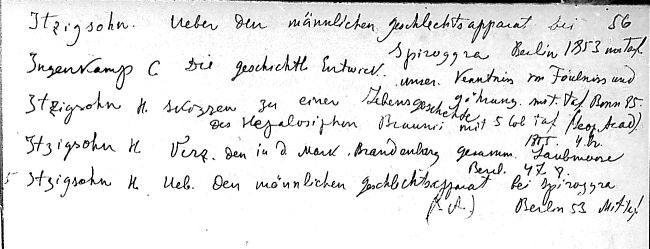 Itzigsohn. Ueber den männlichen geschlechtsapparat bei 56
Spiroggra Berlin 1853 mit taf.
Ingenkamp C Die geschichtl Entwick. unser. Kenntnis von Fäulniss und
gährung. mit. taf Bonn 85.
Itzigsohn H. Skizzen zu einer Lebensgeschichte
des Hapalosiphon Braunii mit 5 col taf (Leop. Acad)
1855. 4. br.
Itzigsohn H Verz. den in d. Mark. Brandenburg gesamm. Laubmoose
Berl. 47. 8.
5 Itzigsohn H. Ueb. den männlichen geschlechtsapparat bei Spiroggra
Berlin 53 Mit taf